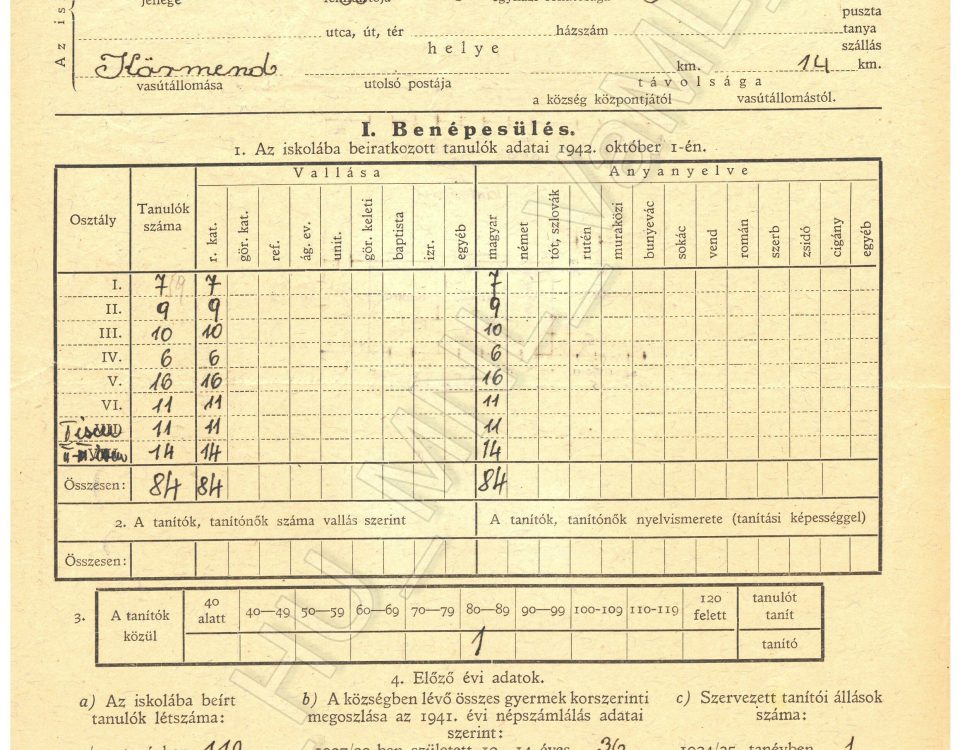 jellege
Az is
puszta
utca, út, tér házszám tanya
helye szállás
Körmend km. 14 km.
vasútállomása utolsó postája távolsága
a község központjától vasútállomástól.
I. Benépesülés.
1. Az iskolába beiratkozott tanulók adatai 1942. október 1-én.
Osztály Tanulók száma Vallása Anyanyelve
r. kat. gör. kat. ref. ág. ev. unit. gör. keleti baptista izr. egyéb magyar német tót, szlovák rutén muraközi bunyevác sokác vend román szerb zsidó cigány egyéb
I. 7 7 7
II. 9 9 9
III. 10 10 10
IV. 6 6 6
V. 16 16 16
VI. 11 11 11
11 11 11
14 14 14
Összesen: 84 84 84
2. A tanítók, tanítónők száma vallás szerint A tanítók, tanítónők nyelvismerete (tanítási képességgel)
Összesen:
3. A tanítók közül 40 alatt 40—49 50—59 60—69 70—79 80—89 90—99 100-109 110-119 120 felett tanulót tanít
1 tanító
4. Előző évi adatok.
a) Az iskolába beírt tanulók létszáma:
b) A községben lévő összes gyermek korszerinti megoszlása az 1941. évi népszámlálás adatai szerint:
c) Szervezett tanítói állások száma:
HU_MNL_VaML